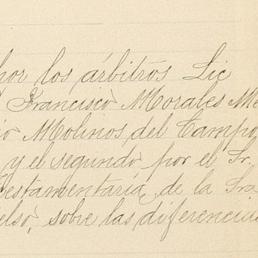 por los árbitros Lic
Francisco Morales Me
Molinos del Campo
y el segundo por el Sr.
Testamentaría de la Sra
elso, sobre las diferencia